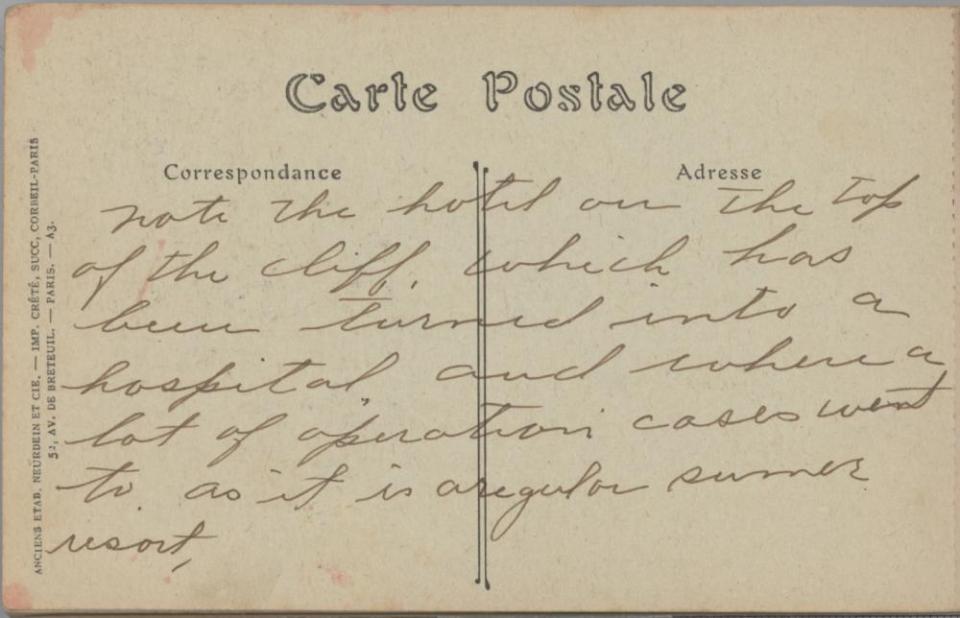 Carte Postale
Correspondance
Adresse
note the hotel on the top
of the cliff, which has
been turned into a
hospital, and where a
lot of operation cases went
to as it is a regular sumer
resort,
ANCIENS ETAB. NEURDEIN ET CIE. — IMP. CRÉTÉ, SUCC, CORBEIL-PARIS
52, AV. DE BRETEUIL. — PARIS. — A3.